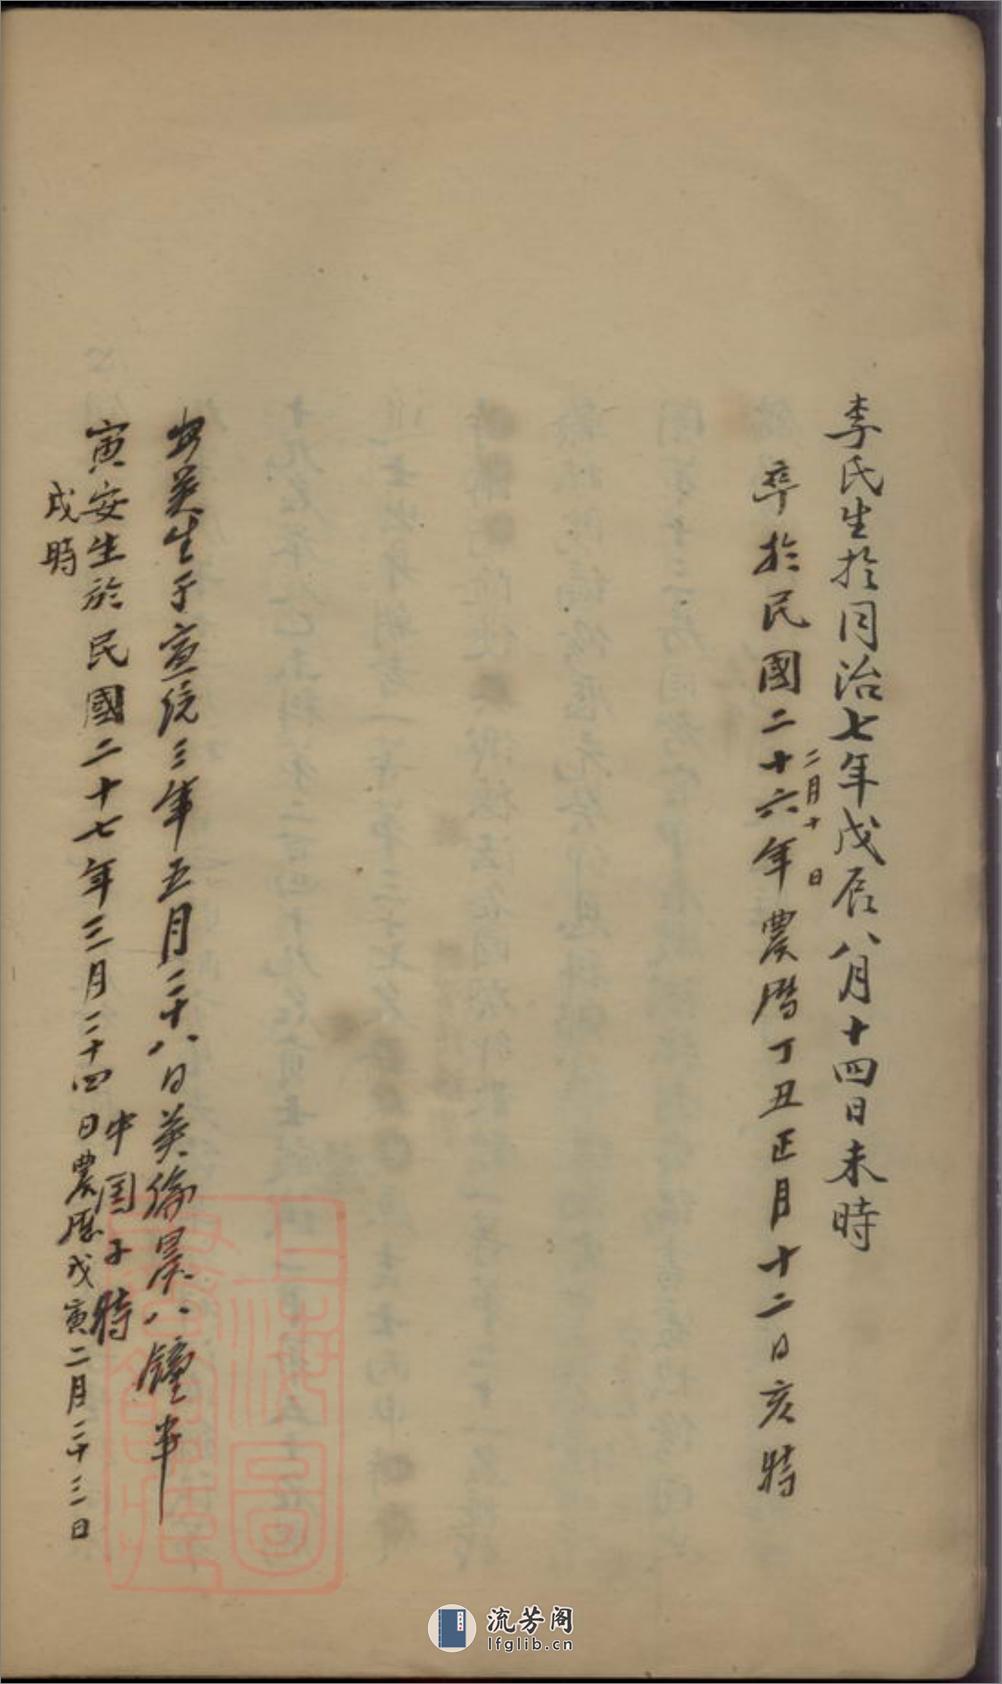 李氏生於同治七年戊辰八月十四日未時
卒於民國二十六年農曆丁丑正月十二日亥時
二月十日
英生于宣統三年五月二十八日英倫晨八鐘半
中国子時
寅安生於民國二十七年三月二十四日農歷戊寅二月二十三日
戌時
流芳阁
lfglib.cn